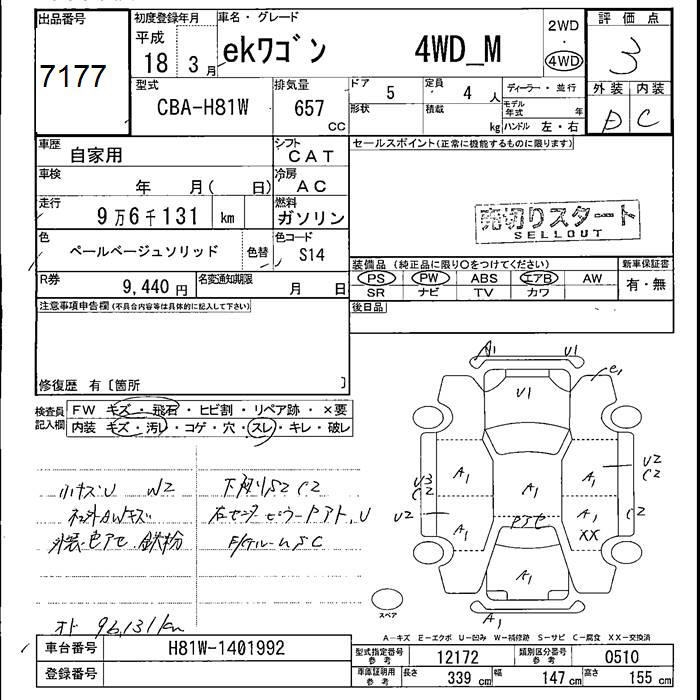 出品番号
7177
初度登録年月
平成
18 3月
車名・グレード
ekワゴン 4WD_M
2WD
・
4WD
評価点
3
型式
CBA-H81W
排気量
657
CC
ドア 5
定員 4 人
形状
積載 kg
ディーラー・並行
モデル年式 年
ハンドル 左・右
外装 内装
D C
車歴
自家用
シフト
CAT
車検
年 月( 日)
冷房
AC
走行
9万6千131 km
燃料
ガソリン
色
ペールベージュソリッド
色替
色コード
S14
R券
9,440円
名変通知期限
月 日
セールスポイント(正常に機能するものに限ります)
売切りスタート
SELLOUT
装備品(純正品に限り○をつけてください)
新車保証書
PS PW ABS エアB AW
SR ナビ TV カワ
有・無
後日品
注意事項申告欄(不具合内容等は具体的に記入して下さい)
修復歴 有〔箇所 〕
検査員記入欄
FW キズ・飛石・ヒビ割・リペア跡・×要
内装 キズ・汚レ・コゲ・穴・スレ・キレ・破レ
小キズU W2
社外AWキズ
外装色アセ 鉄粉
オド 96,131km
下廻りS2 C2
A1 U1
e1
U1
A1
U3
C2
U2
A1
A1
A1
U2
C2
A1
XX
C2
アセ
A1
A1
スペア
A-キズ E-エクボ U-凹み W-補修跡 S-サビ C-腐食 XX-交換済
車台番号
H81W-1401992
登録番号
型式指定番号
参考
12172
類別区分番号
参考
0510
車庫証明用
参考
長さ 339 cm
幅 147 cm
高さ 155 cm